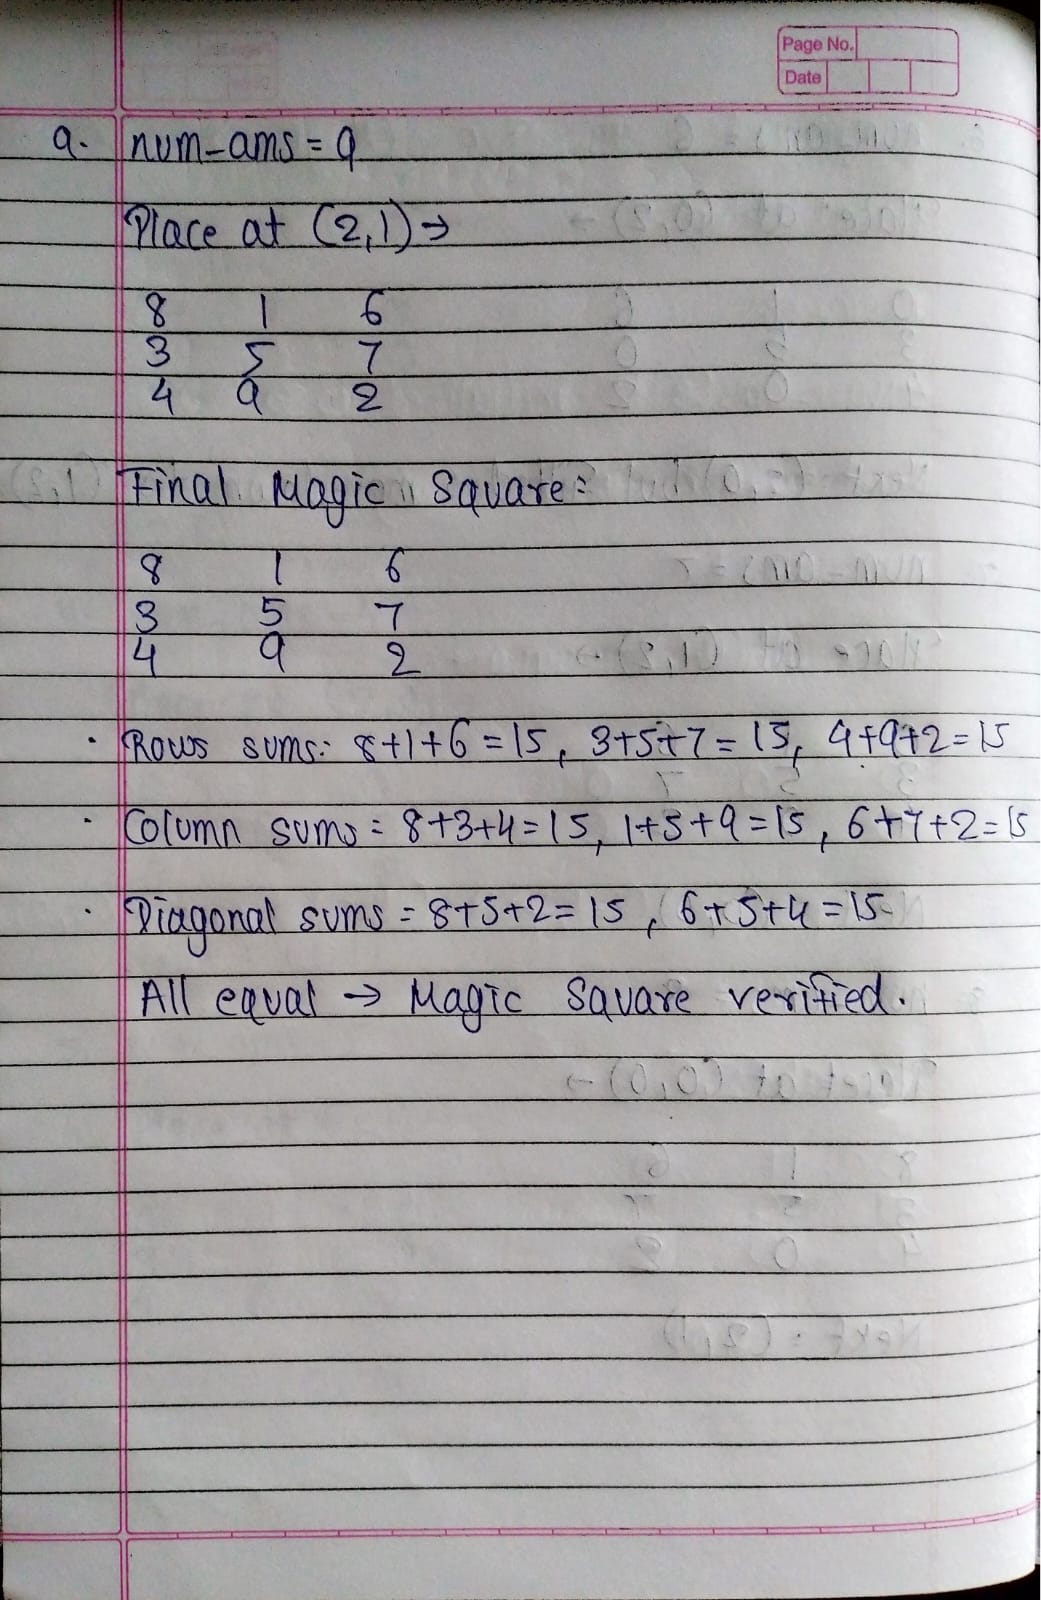 Page No.
Date
9. num-ams = 9
Place at (2,1) →
8 1 6
3 5 7
4 9 2
Final Magic Square:
8 1 6
3 5 7
4 9 2
· Rows sums: 8+1+6=15, 3+5+7=15, 4+9+2=15
· Column sums = 8+3+4=15, 1+5+9=15, 6+7+2=15
· Diagonal sums = 8+5+2=15, 6+5+4=15
All equal → Magic Square verified.